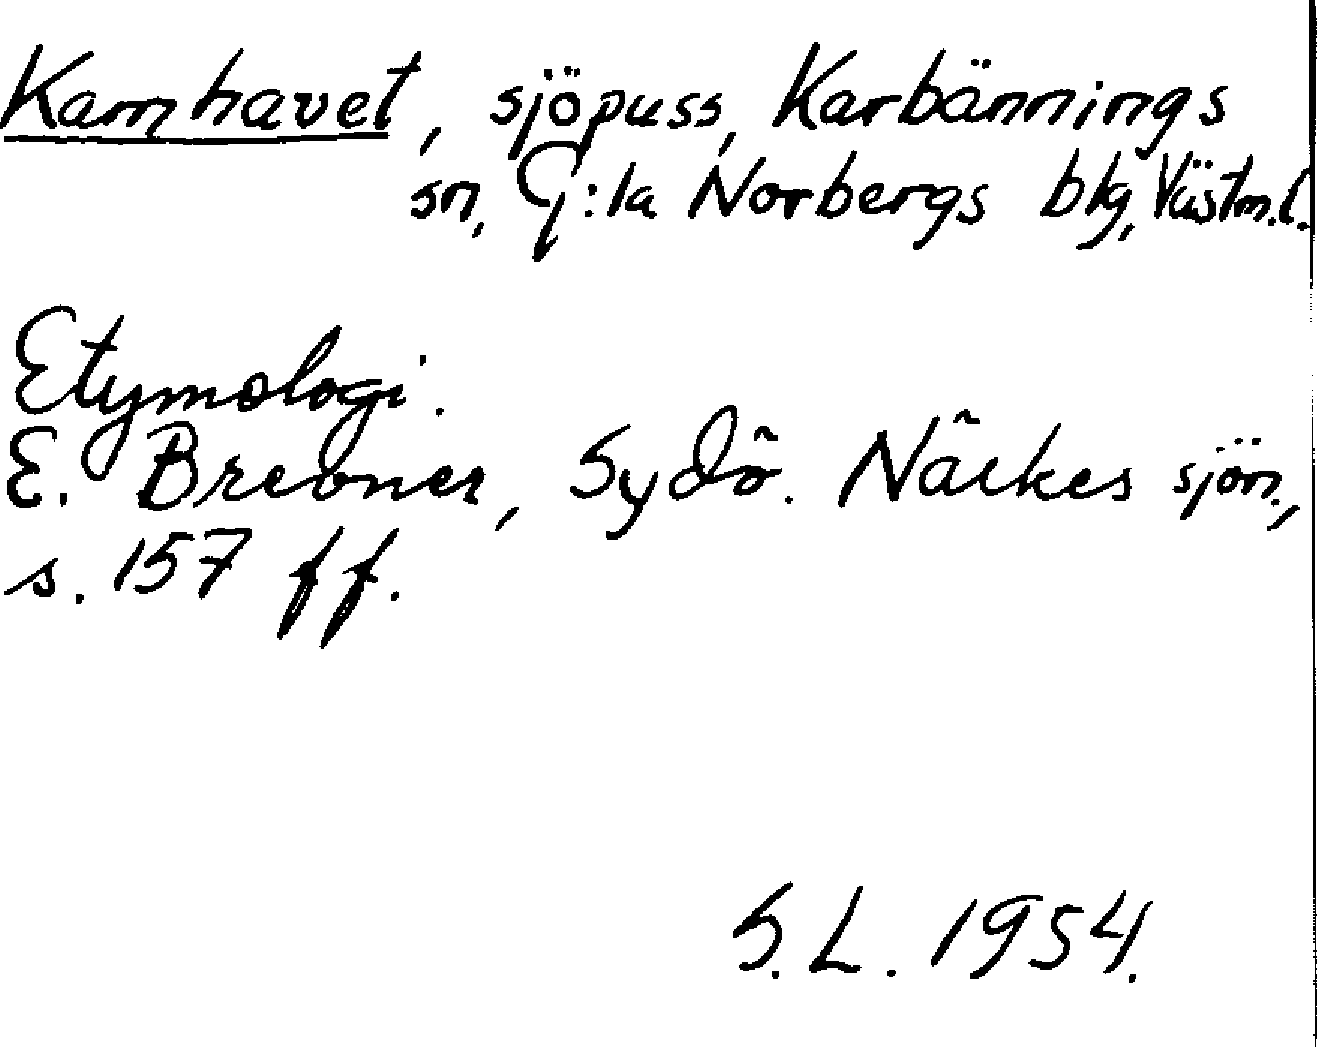 Kamhavet, sjöpuss, Karbännings
sn, G:la Norbergs blg, Västm.l.
Etymologi.
E. Brevner, Sydö. Närkes sjön.,
s. 157 ff.
S.L. 1954.